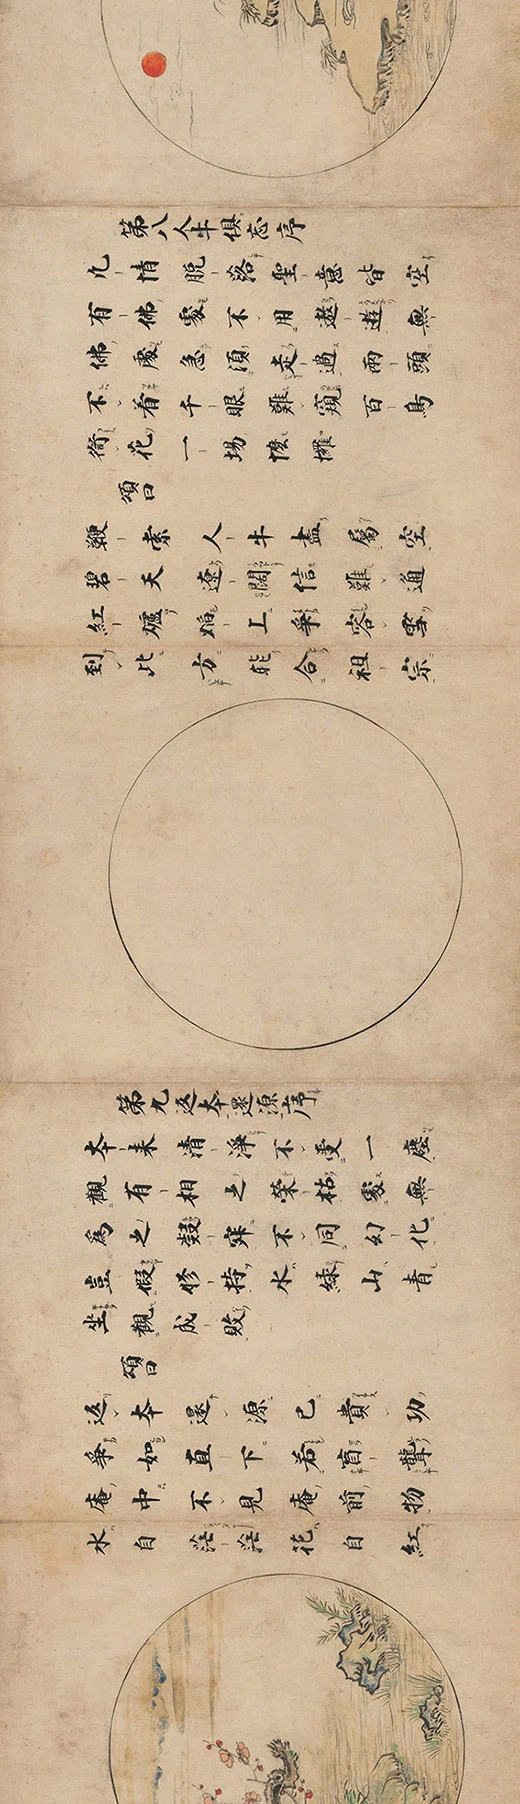 第八人牛倶忘序
凡情脱落聖意皆空
有佛處不用遨遊無
佛處急須走過兩頭
不着千眼難窺百鳥
銜花一場懡㦬
頌曰
鞭索人牛盡属空
碧天遼闊信難通
紅爐焰上爭容雪
到此方能合祖宗
第九返本還源序
本来清淨不受一塵
觀有相之榮枯處無
為之凝寂不同幻化
豈假修持水緑山青
坐觀成敗
頌曰
返本還源已費功
爭如直下若盲聾
庵中不見庵前物
水自茫茫花自紅